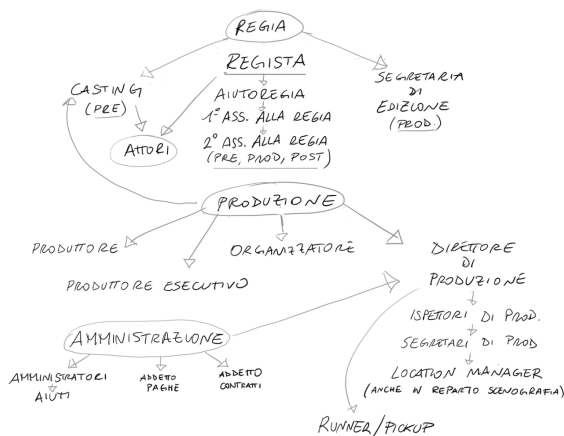 REGIA
REGISTA
CASTING
(PRE)
AIUTOREGIA
1° ASS. ALLA REGIA
2° ASS. ALLA REGIA
(PRE, PROD, POST)
SEGRETARIA
DI
EDIZIONE
(PROD.)
ATTORI
PRODUZIONE
PRODUTTORE
PRODUTTORE ESECUTIVO
ORGANIZZATORE
DIRETTORE
DI
PRODUZIONE
ISPETTORI DI PROD.
SEGRETARI DI PROD
LOCATION MANAGER
(ANCHE IN REPARTO SCENOGRAFIA)
RUNNER/PICKUP
AMMINISTRAZIONE
AMMINISTRATORI
AIUTI
ADDETTO
PAGHE
ADDETTO
CONTRATTI